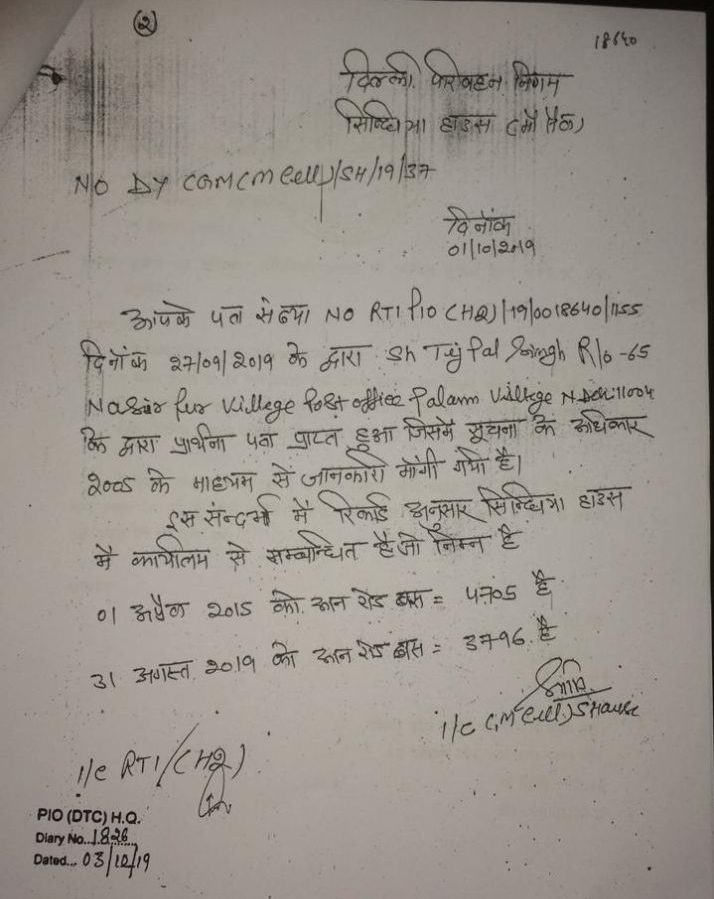 (२)
18640
दिल्ली परिवहन निगम
सिन्धिया हाउस (मौ सैल)
NO DY CGM(M Cell)/SH/19/37
दिनाँक
01/10/2019
आपके पत्र संख्या NO RTI PIO (HQ)/19/0018640/1155
दिनाँक 27/09/2019 के द्वारा Sh Tej Pal Singh R/o-65
Nasir pur Village Post office Palam Village N.Delhi
के द्वारा प्रार्थना पत्र प्राप्त हुआ जिसमें सूचना के अधिकार
2005 के माध्यम से जानकारी माँगी गयी है।
इस संन्दर्भ में रिकार्ड अनुसार सिन्धिया हाउस
में कार्यालय से सम्बन्धित है जो निम्न है
01 अप्रैल 2015 को आन रोड बस = 4705 है
31 अगस्त 2019 को आन रोड बास = 3796 है
I/c (M Cell) S House
I/c RTI/(HQ)
PIO (DTC) H.Q.
Diary No..1826
Dated... 03/10/19